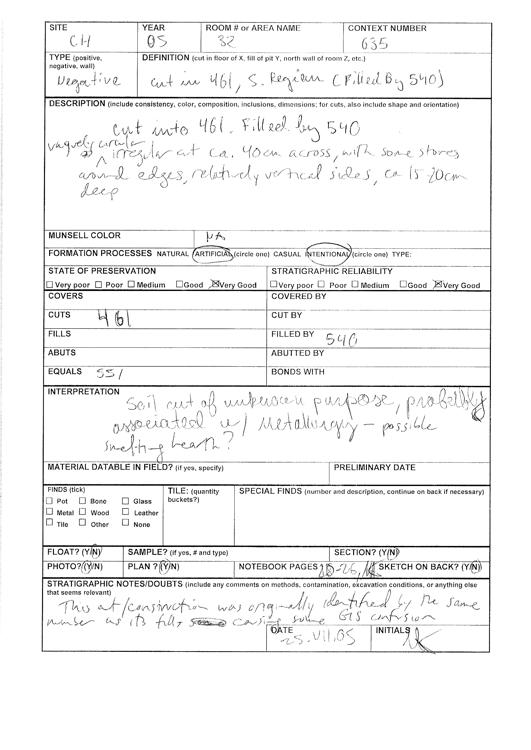 SITE YEAR ROOM # or AREA NAME CONTEXT NUMBER
CH 05 32 635
TYPE (positive, negative, wall) DEFINITION (cut in floor of X, fill of pit Y, north wall of room Z, etc.)
Negative cut in 461, S. Region (Filled By 540)
DESCRIPTION (include consistency, color, composition, inclusions, dimensions; for cuts, also include shape and orientation)
Cut into 461. Filled by 540
vaguely circular
irregular at ca. 40cm across, with some stones
around edges, relatively vertical sides, ca 15-20cm
deep
MUNSELL COLOR NA
FORMATION PROCESSES NATURAL ARTIFICIAL (circle one) CASUAL INTENTIONAL (circle one) TYPE:
STATE OF PRESERVATION STRATIGRAPHIC RELIABILITY
Very poor Poor Medium Good Very Good Very poor Poor Medium Good Very Good
COVERS COVERED BY
CUTS 461 CUT BY
FILLS FILLED BY 540
ABUTS ABUTTED BY
EQUALS 551 BONDS WITH
INTERPRETATION
Soil cut of unknown purpose, probably
associated w/ Metallurgy - possible
smelting hearth?
MATERIAL DATABLE IN FIELD? (if yes, specify) PRELIMINARY DATE
FINDS (tick) TILE: (quantity buckets?) SPECIAL FINDS (number and description, continue on back if necessary)
Pot Bone Glass
Metal Wood Leather
Tile Other None
FLOAT? (Y/N) SAMPLE? (if yes, # and type) SECTION? (Y/N)
PHOTO? (Y/N) PLAN? (Y/N) NOTEBOOK PAGES SKETCH ON BACK? (Y/N)
STRATIGRAPHIC NOTES/DOUBTS (include any comments on methods, contamination, excavation conditions, or anything else
that seems relevant)
This cut/construction was originally identified by the same
number as its fill, causing some GIS confusion
DATE INITIALS
25.VII.05